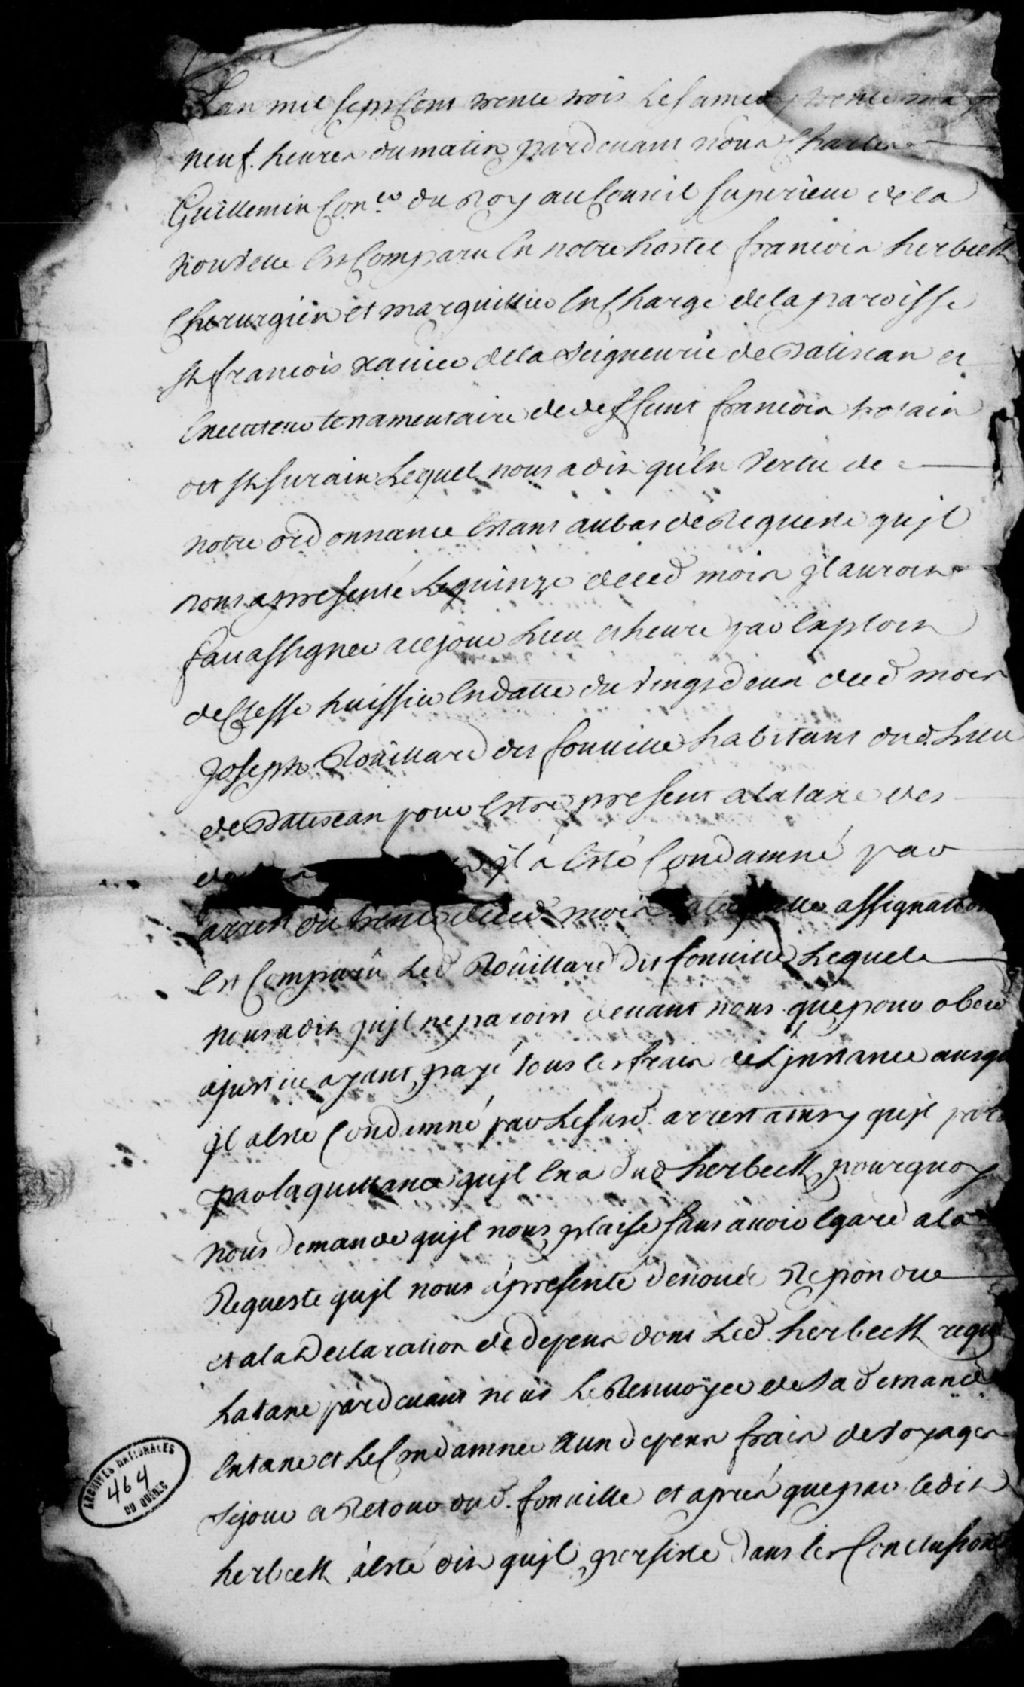 Lan mil sept cent trente trois le samedy trente may
neuf heures du matin pardevant nous Charles
Guillemin Con.er du Roy au Conseil superieur de la
est comparu en notre hostel francois herbecq
chirurgien et marguillier en charge de la paroisse
st francois xavier de la seigneurie de Batiscan et
executeur testamentaire de deffunt francois
dit st surain lequel nous a dit qu'en vertu de
notre ordonnance estant au bas de Requeste qu'jl
nous a presenté le quinze de ced mois jl auroit
fait assigner a ce jour lieu et heure par exploit
de Clesse huissier en datte du vingt deux de ced mois
Joseph Roüillard dit fonville habitant dud. lieu
de Batiscan pour estre present a la taxe des
jl á esté condamné par
larrest du de ced mois assignation
est comparu led Roüillard dit fonville lequel
nous a dit qu'jl ne paroist devant nous que pour obeir
a justice ayant payé tous les frais de l'jnstance
jl a esté condamné par le susd. arrest ainsy qu'jl
par la quittance qu'jl en a dud herbecq pourquoy
nous demande qu'jl nous plaise sans avoir egard a la
Requeste qu'jl nous á presenté Reponduë
et a la declaration de depens dont led. herbecq
la taxe pardevant nous le Renvoyer de sa demande
en taxe et le condamner aux depens frais de voyages
sejour et Retour dud. fonville et aprés que par ledit
herbecq á esté dit qu'jl persiste dans les conclusions
ARCHIVES NATIONALES
464
DU QUÉBEC